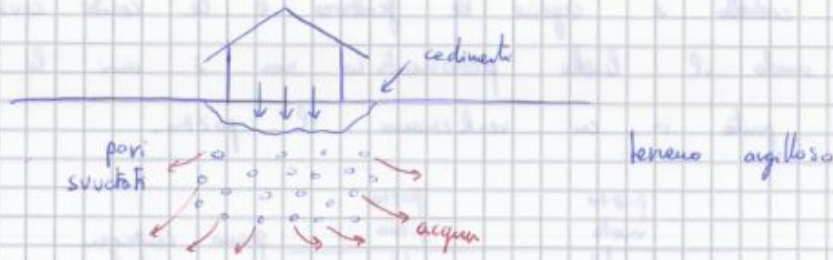 cedimenti
pori
svuotati
terreno argilloso
acqua